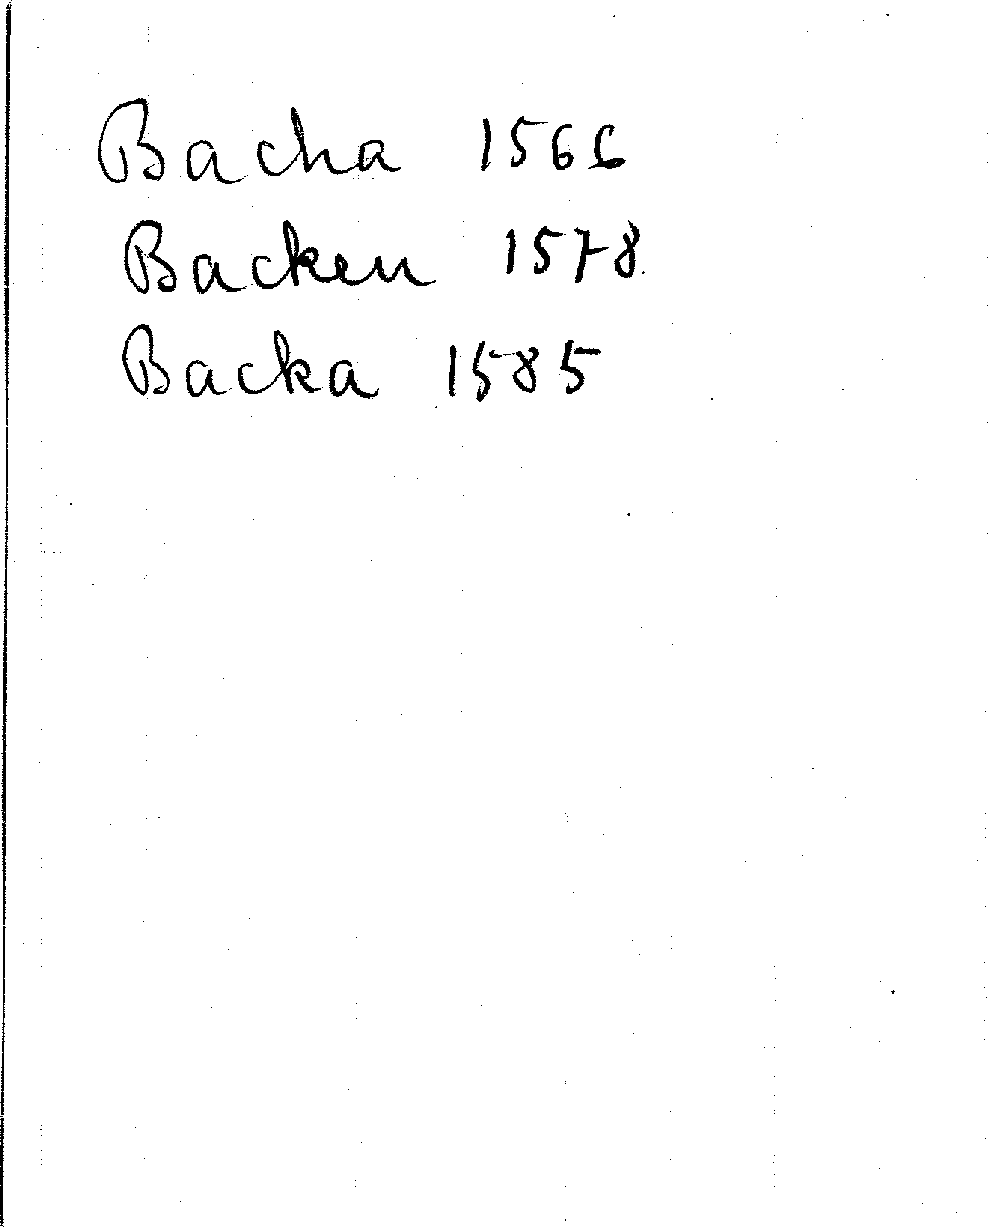 Bacha 1566
Backen 1578
Backa 1585